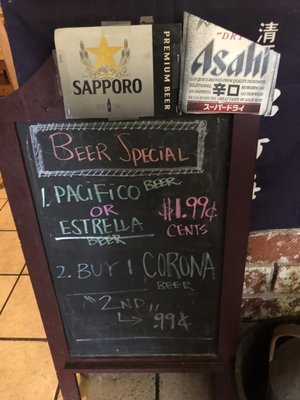 SAPPORO
PREMIUM BEER
"DRY"
Asahi
辛口
スーパードライ
BEER SPECIAL
1. PACIFICO BEER
OR
ESTRELLA
BEER
$1.99¢
CENTS
2. BUY 1 CORONA
BEER
"2ND"
.99¢